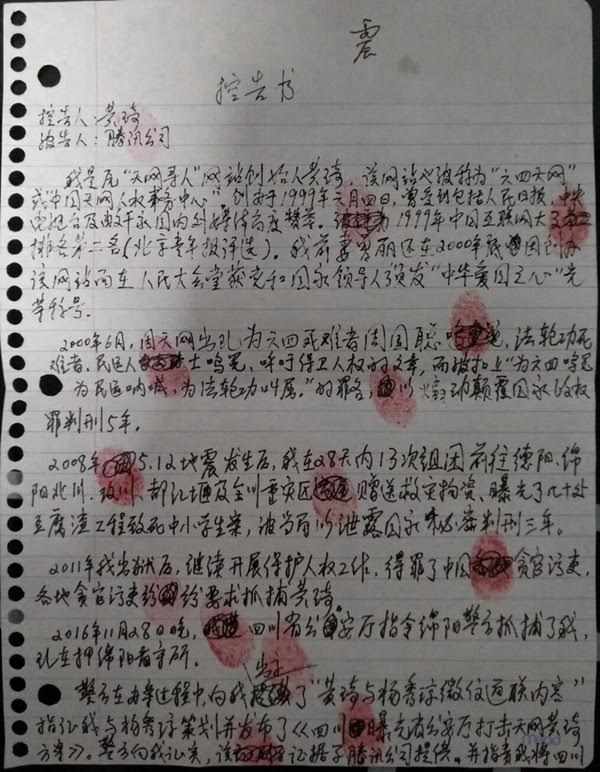 震
控告书
控告人：黄琦
被告人：腾讯公司
我是原“天网寻人”网站创始人黄琦，该网站也被称为“六四天网”
或“中国天网人权事务中心”。创办于1999年六月四日，曾受到包括人民日报、中央
电视台及数千家国内外媒体高度赞誉。1999年中国互联网大
排名第二名（北京青年报评选）。我前妻曾丽还在2000年因创办
该网站而在人民大会堂获党和国家领导人颁发“中华爱国之心”光
荣称号。
2000年6月，因天网出现为六四死难者周国聪鸣冤、法轮功死
难者、民运人士鸣冤、呼吁保卫人权的文章，而被扣上“为六四鸣冤
为民运呐喊、为法轮功叫屈”的罪名，以煽动颠覆国家政权
罪判刑5年。
2008年5.12地震发生后，我在28天内13次组团前往德阳、绵
阳北川、汶川、都江堰及全川重灾区赠送救灾物资、曝光了几十处
豆腐渣工程致死中小学生案，被当局以泄露国家秘密判刑三年。
2011年我出狱后，继续开展保护人权工作，得罪了中国贪官污吏，
各地贪官污吏纷纷要求抓捕黄琦。
2016年11月28日晚，四川省公安厅指令绵阳警方抓捕了我，
现在押绵阳看守所。
警方在办案过程中，向我出示了“黄琦与杨秀琼微信通联内容”
指证我与杨秀琼策划并发布了《四川曝光省公安厅打击天网黄琦
方案》。警方向我证实，该证据于腾讯公司提供。并指责我将四川